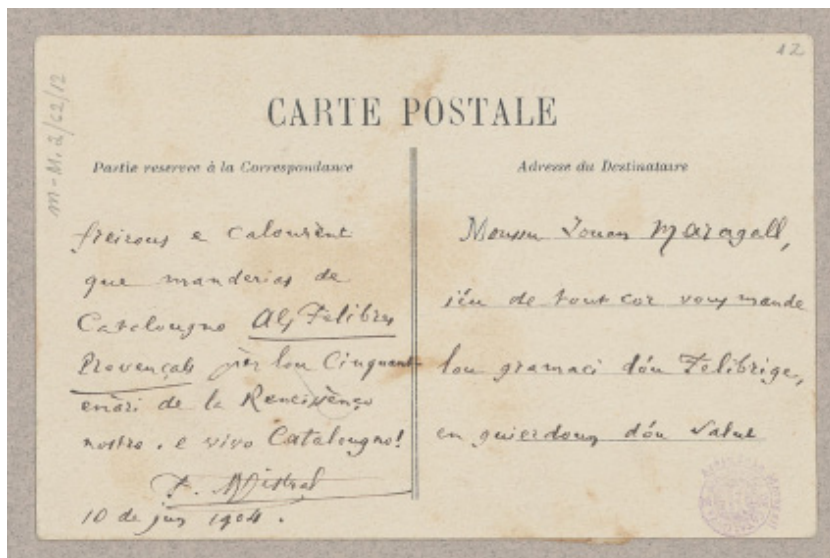 12
m-M.2/62/12
CARTE POSTALE
Partie reservee à la Correspondance
freirous e calourènt
que manderias de
Catalougno Als Felibres
Provençals pèr lou Cinquant-
enàri de la Reneissènço
nostro. e vivo Catalougno!
F. Mistral
10 de jun 1904.
Adresse du Destinataire
Moussu Jouan Maragall,
iéu de tout cor vous mande
lou gramaci dóu Felibrige,
en guierdoun dóu salut